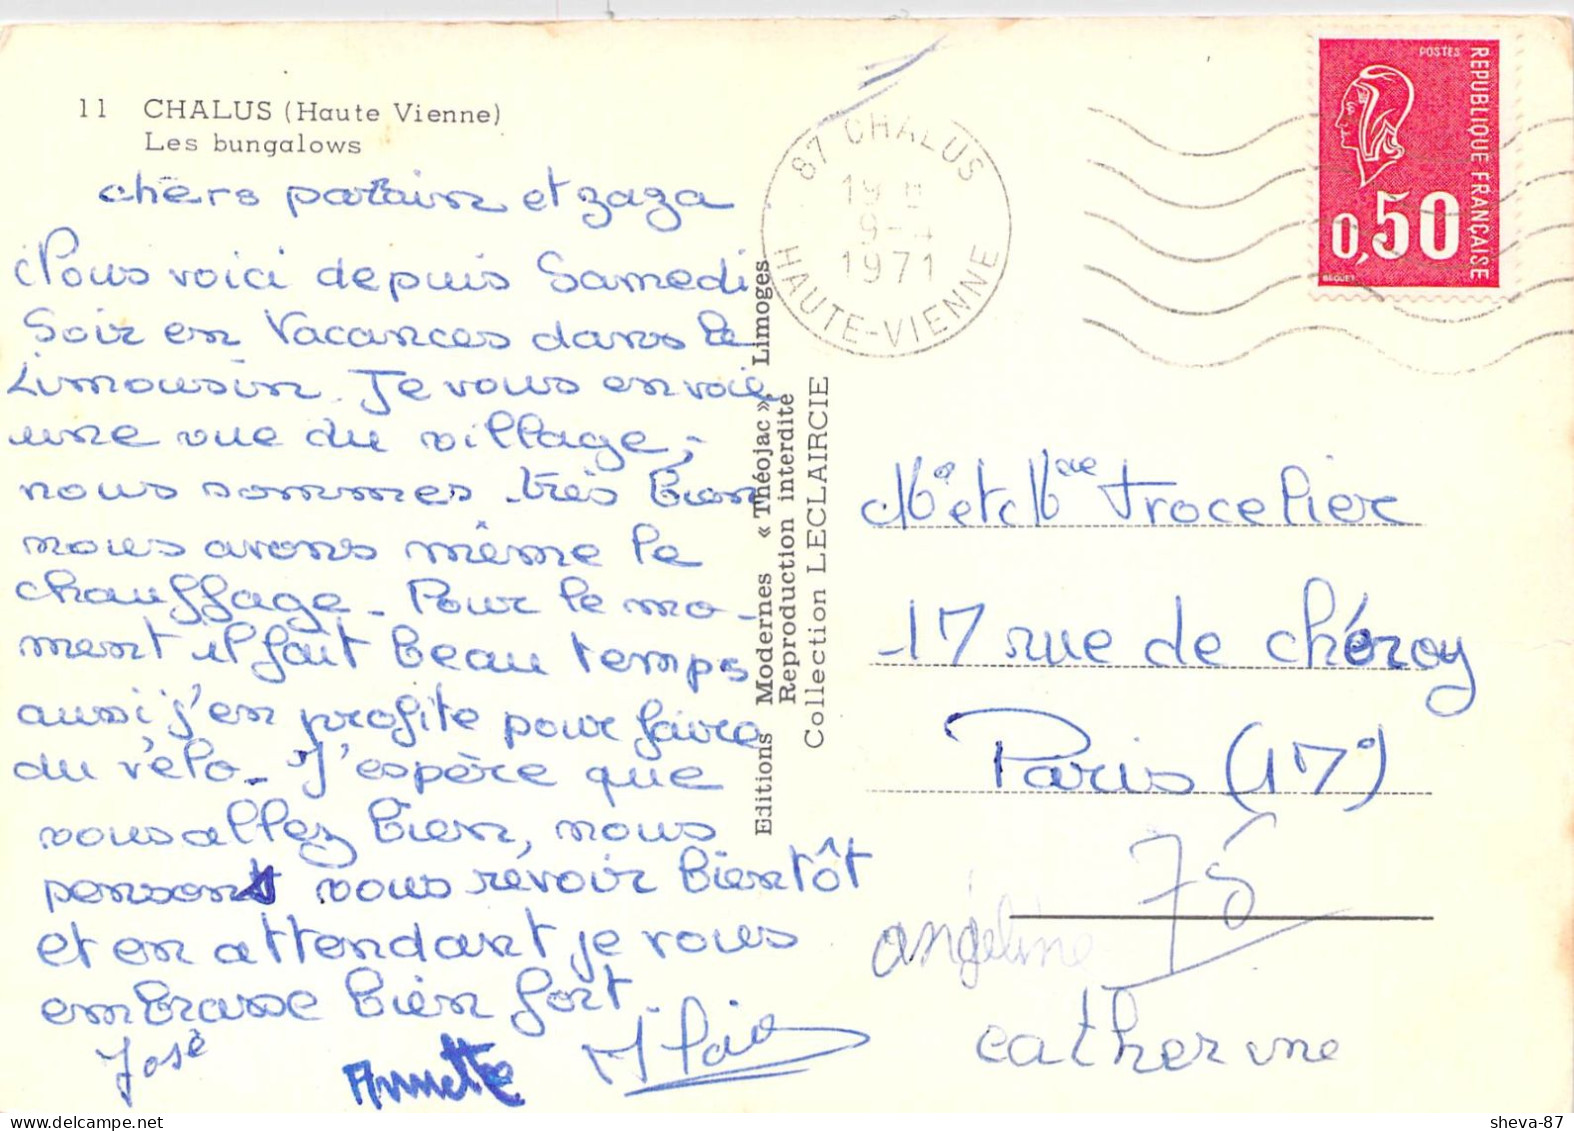 11 CHALUS (Haute Vienne)
Les bungalows
chers parain et zaza
Nous voici depuis Samedi
Soir en Vacances dans le
Limousin. Je vous envoie
une vue du village,
nous sommes très bien
nous avons même le
chauffage. Pour le mo-
ment il fait beau temps
aussi j'en profite pour faire
du vélo. J'espère que
vous allez bien, nous
pensons vous révoir bientôt
et en attendant je vous
embrasse bien fort.
José
Annette
Editions Modernes « Théojac », Limoges
Reproduction interdite
Collection LECLAIRCIE
87 CHALUS
19 H
9-4
1971
HAUTE-VIENNE
POSTES
REPUBLIQUE FRANÇAISE
0,50
BEQUET
Mr et Mme Trocelier
17 rue de chéroy
Paris (17°)
75
angéline
catherine
sheva-87